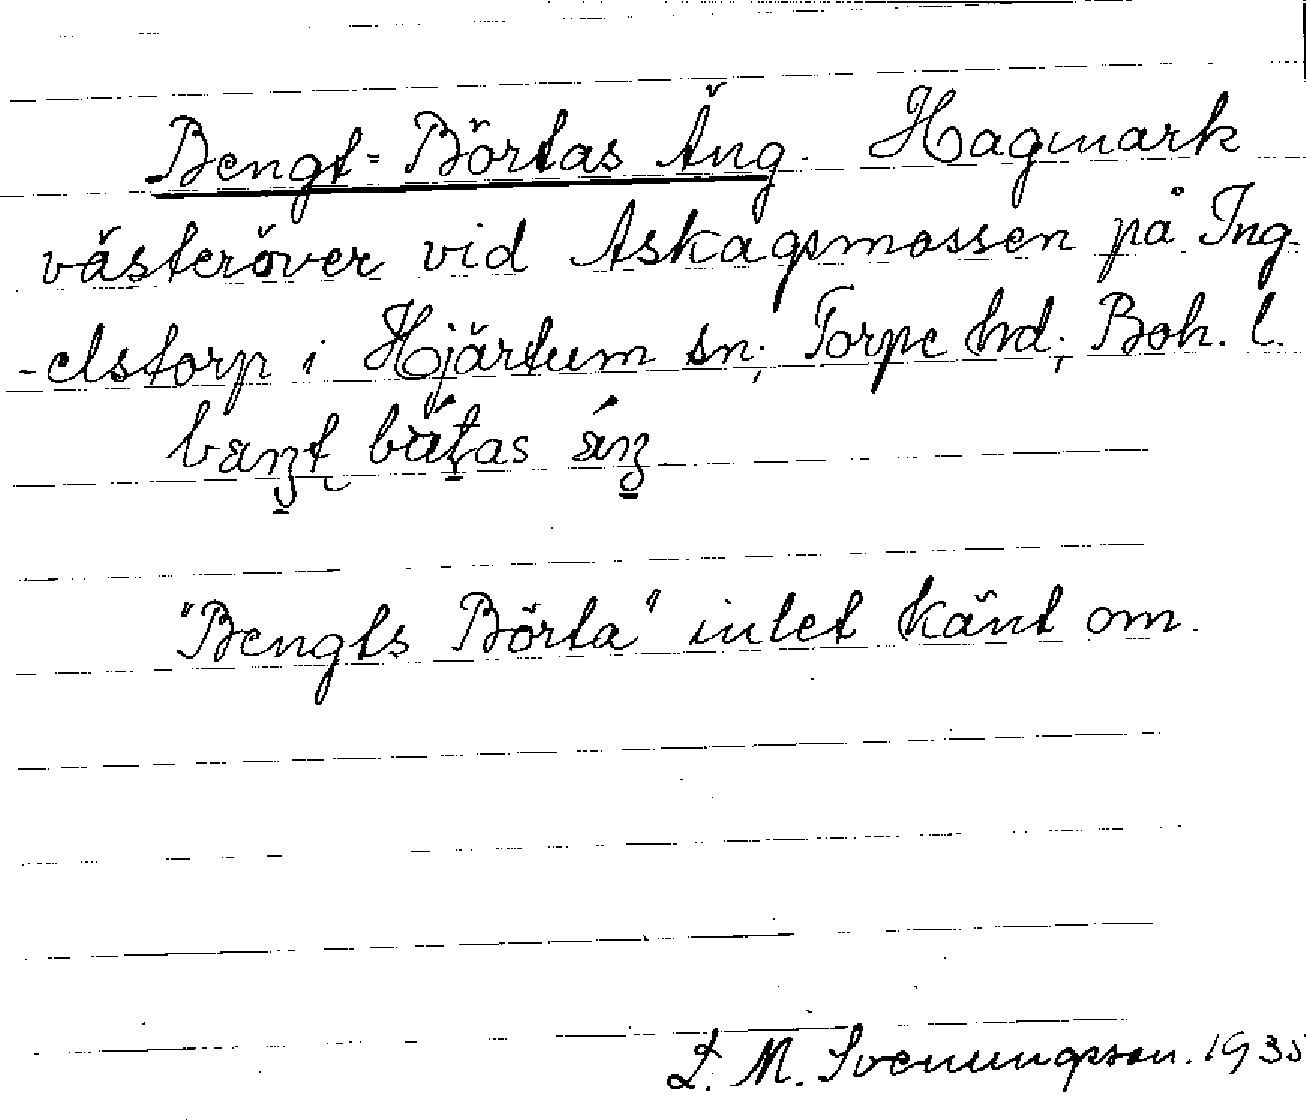 Bengt-Börtas Äng. Hagmark
västeröver vid Askagsmossen på Ing-
-elstorp i Hjärtum sn; Torpe hd; Boh. l.
bæŋt bö́ṭas ä́ŋ
"Bengts Börta" intet känt om.
L. M. Svenungsson. 1935